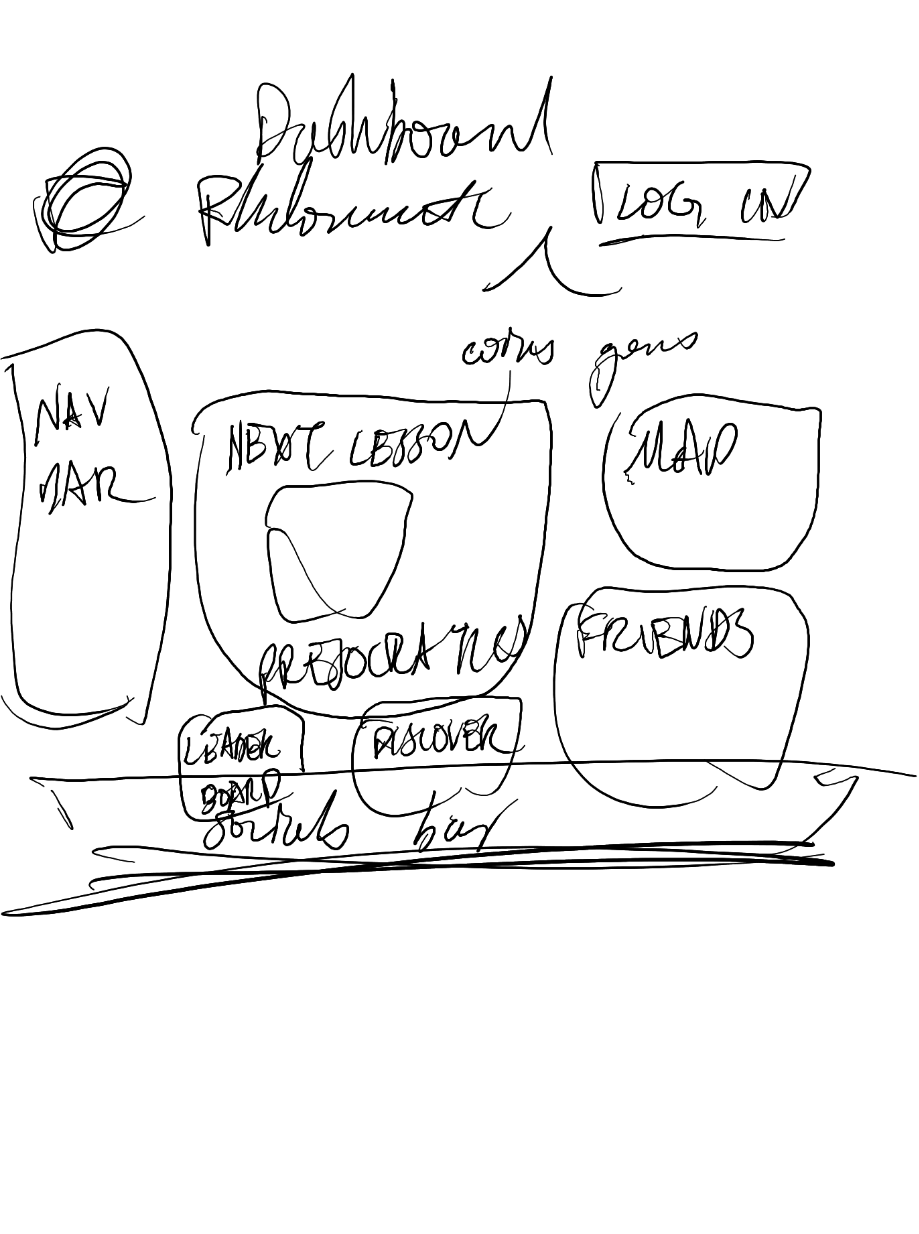 Dashboard
LOG IN
coins gems
NAV
BAR
NEXT LESSON
MAP
PRESOCRATICS
FRIENDS
LEADER
BOARD
DISCOVER
bar